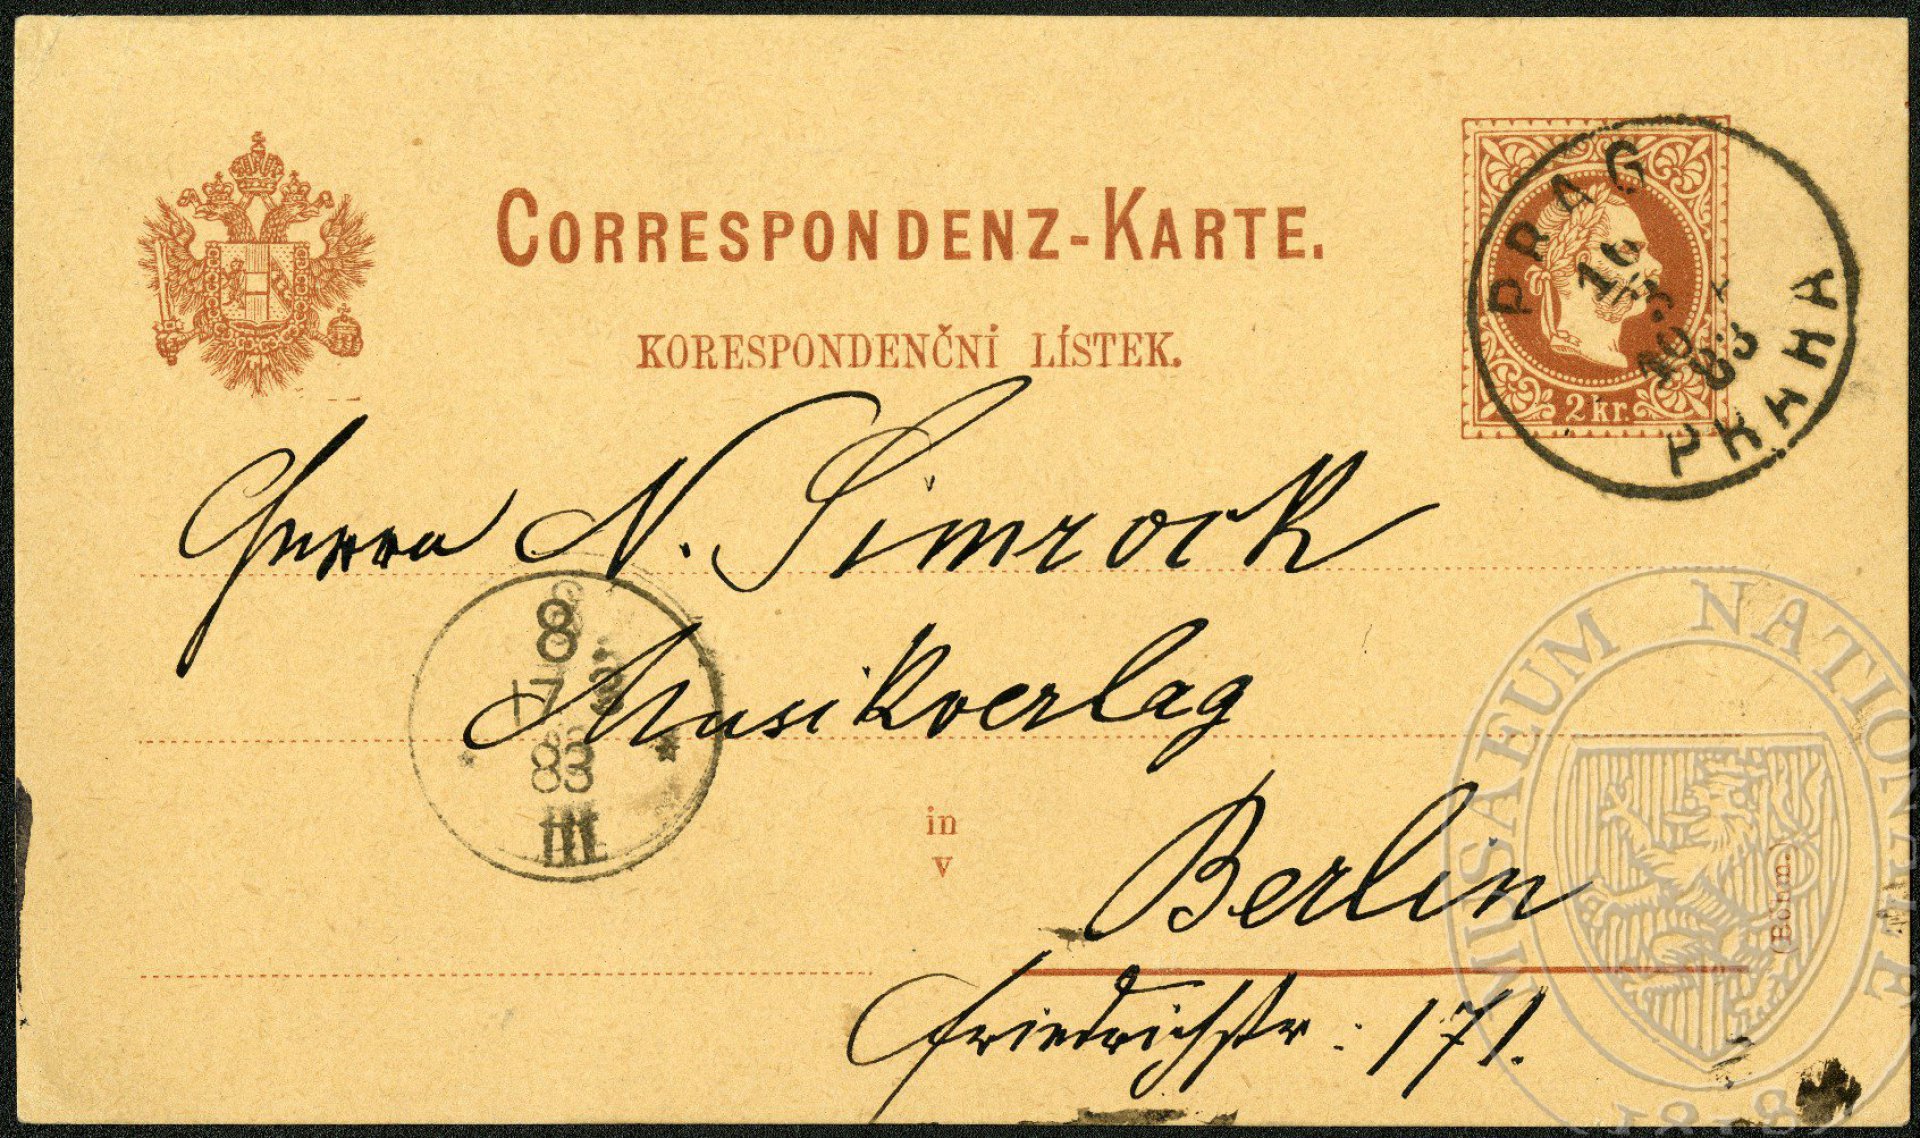 CORRESPONDENZ-KARTE.
KORESPONDENČNÍ LÍSTEK.
2 kr.
PRAG
16
3
83
PRAHA
Herrn N. Simrock
8
17 3
83
III
Musikverlag
in
v
Berlin
(Böhm.)
Friedrichstr: 171.
MUSAEUM NATIONALE
1818